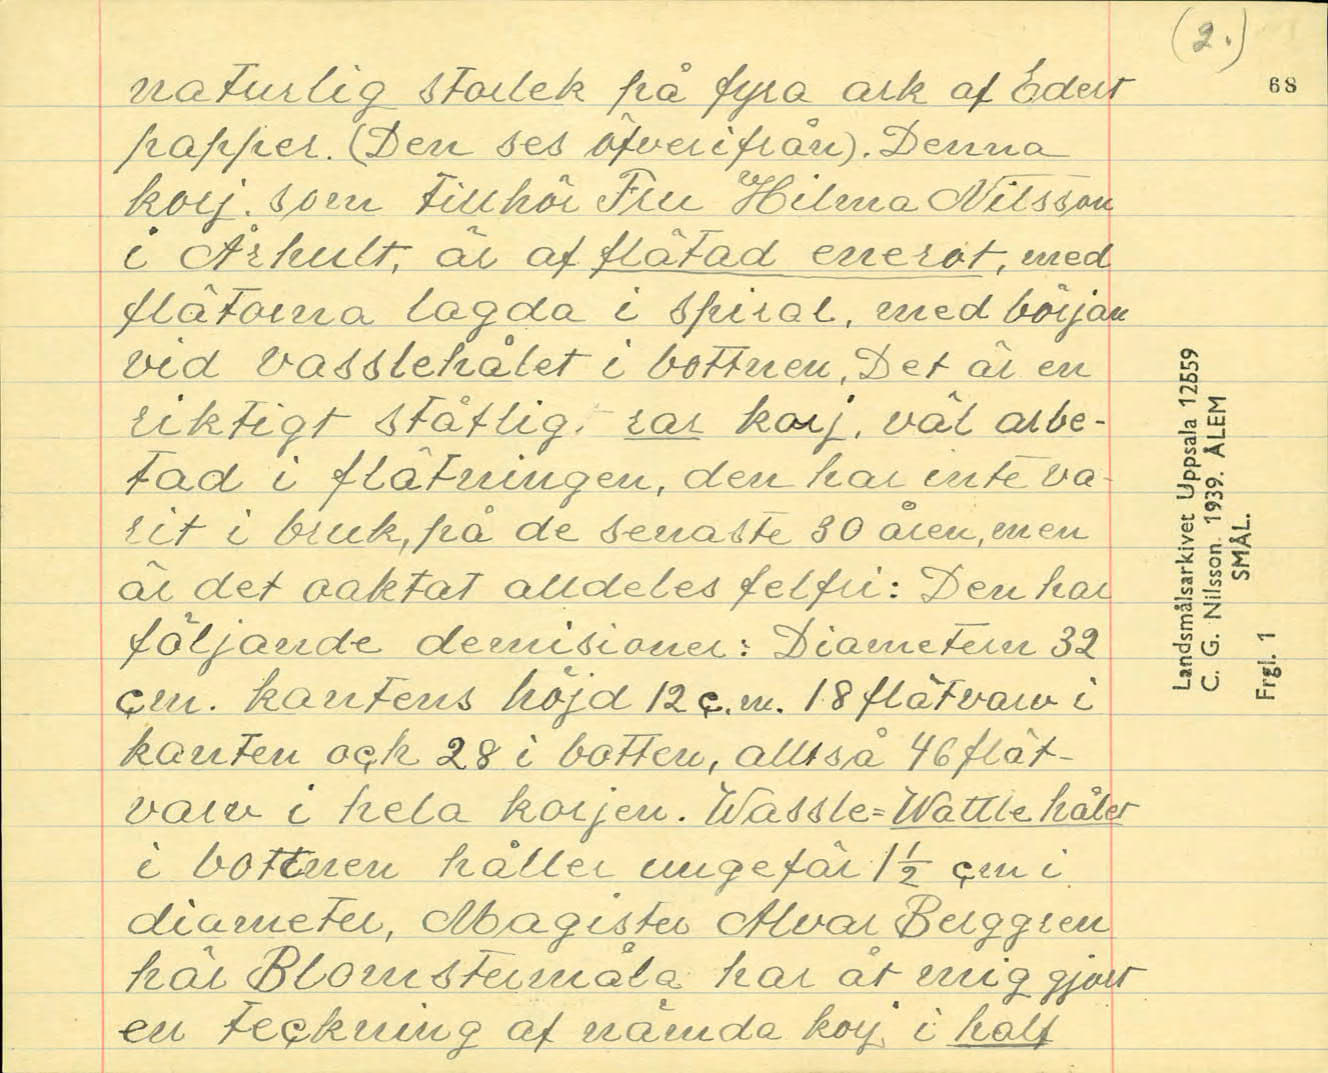 (2.)
68
naturlig storlek på fyra ark af Edert
papper. (Den ses öfverifrån). Denna
korj. som tillhör Fru Hilma Nilsson
i Århult, är af flätad enerot, med
flätorna lagda i spiral, med början
vid vasslehålet i bottnen, Det är en
riktigt ståtlig. rar korj, väl arbe-
tad i flätningen, den har inte va-
rit i bruk, på de senaste 30 åren, men
är det oaktat alldeles felfri: Den har
följande demisioner: Diametern 32
cm. kantens höjd 12 c.m. 18 flätvarv i
kanten och 28 i botten, alltså 46 flät-
varv i hela korjen. Wassle=Wattle hålet
i bottnen håller ungefär 1½ cm i
diameter, Magister Alvar Berggren
här Blomstermåla har åt mig gjort
en teckning af nämda korj, i half
Landsmålsarkivet Uppsala 12559
C. G. Nilsson. 1939. ÅLEM
SMÅL.
Frgl. 1